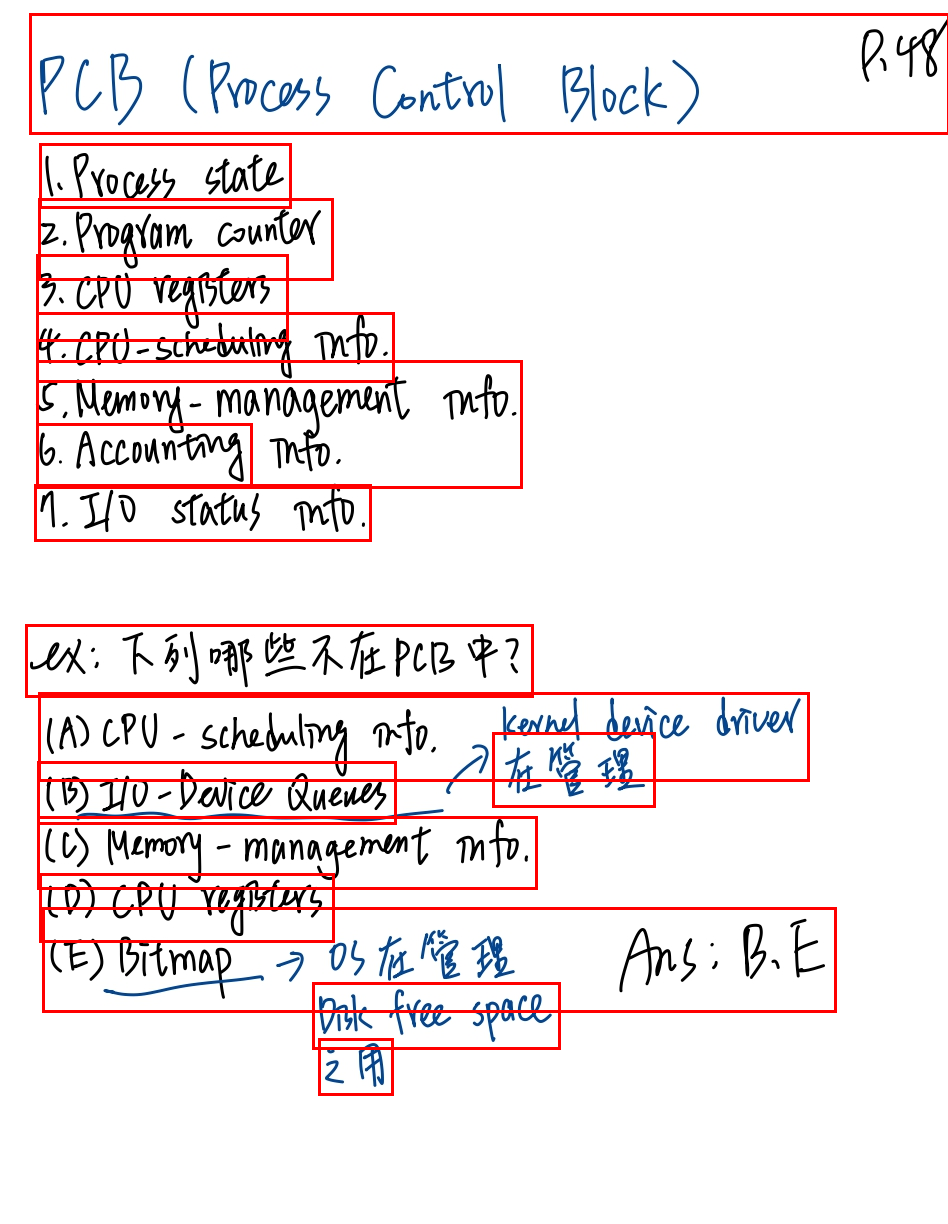 P.48
PCB (Process Control Block)
1. Process state
2. Program counter
3. CPU registers
4. CPU-scheduling info.
5. Memory-management info.
6. Accounting info.
7. I/O status info.
ex: 下列哪些不在PCB中?
(A) CPU - scheduling info.
(B) I/O-Device Queues → kernel device driver
在管理
(C) Memory-management info.
(D) CPU registers
(E) Bitmap → OS在管理
Disk free space
之用
Ans: B、E